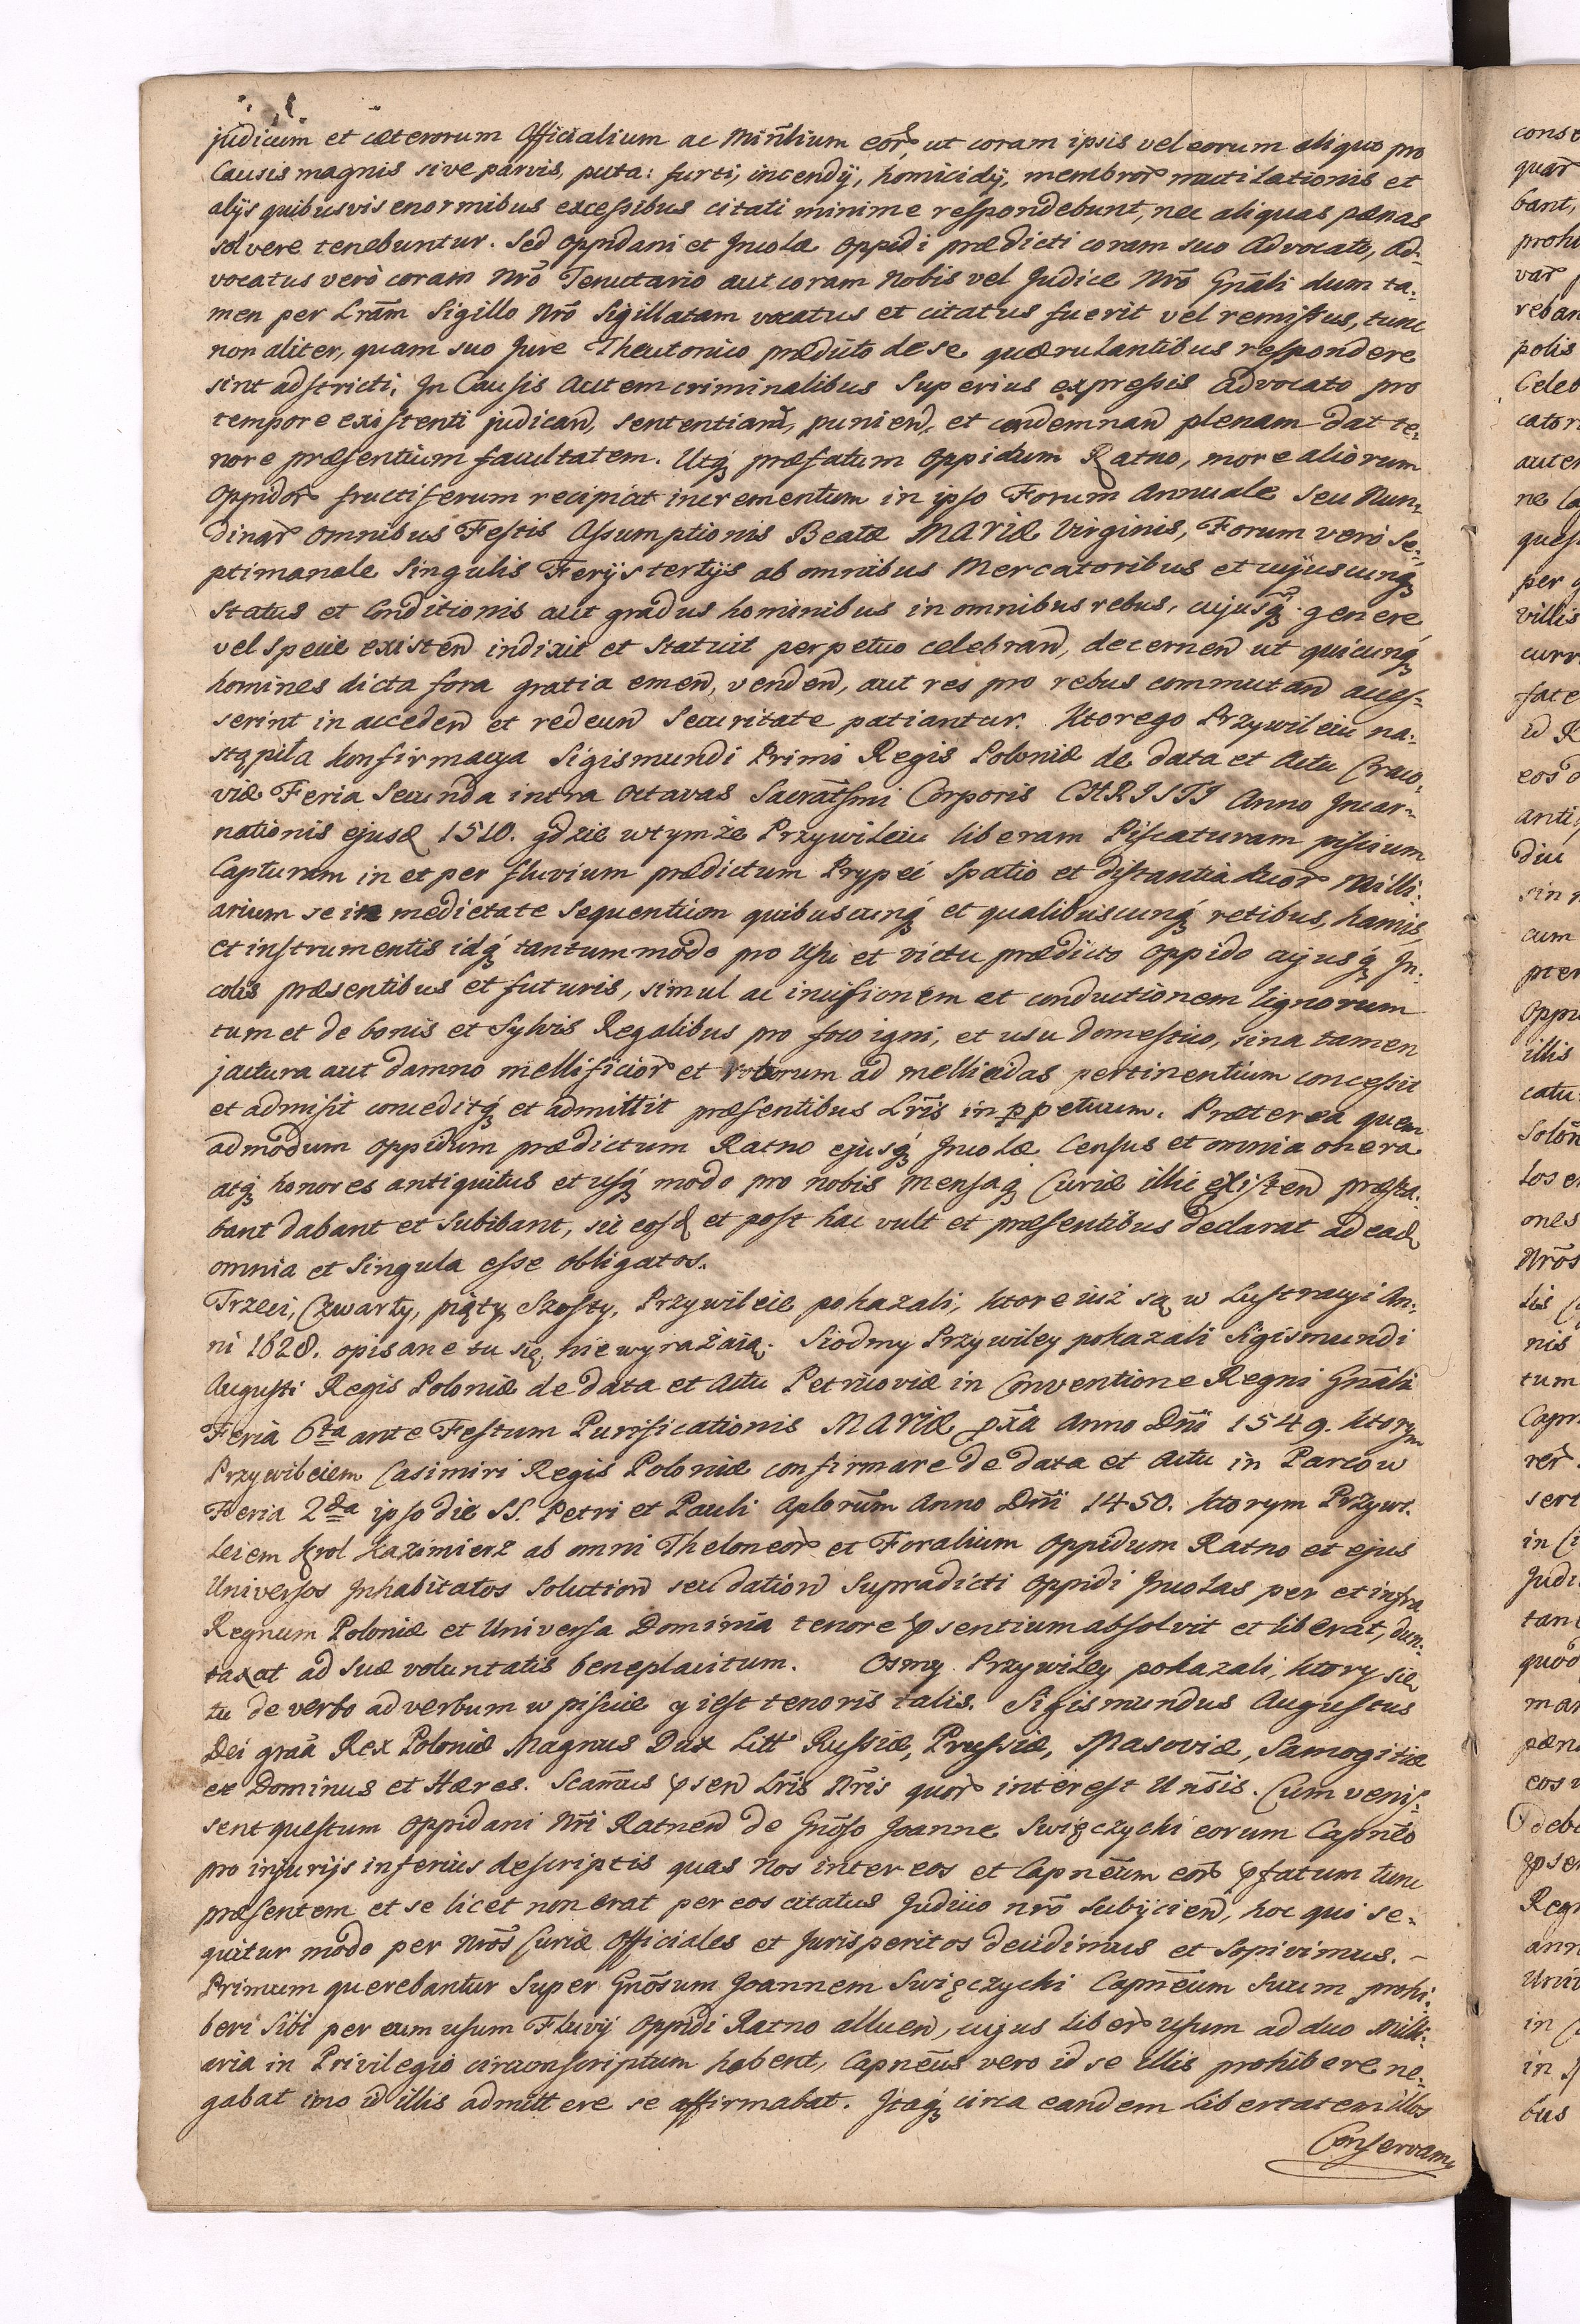 judicum et cæterorum Officialium ac Minĩlium eor̃, ut coram ipsis vel eorum aliquo pro
Causis magnis sive parvis, puta: furti, incendÿ, homicidÿ, membror̃ mutilationis et
alÿs quibusvis enormibus excessibus citati minime respondebunt, nec aliquas pænas
solvere tenebuntur. Sed Oppidani et Jncolæ Oppidi prædicti coram suo Advocato, Ad-
vocatus verò coram Nrõ Tenutario aut coram Nobis vel Judice Nrõ Gnãli dum ta-
men per Lrãm Sigillo Nrõ Sigillatam vocatus et citatus fuerit vel remissus, tunc
non aliter, quam suo Jure Theutonico prædicto de se quærulantibus respondere
sint adstricti; Jn Causis Autem criminalibus Superius expressis Advocato pro
tempore existenti judicand̃, sententiand̃, puniend̃, et condemnand̃ plenam dat te-
nore præsentium facultatem. Utq; præfatum Oppidum Ratno, more aliorum
Oppidor̃ fructiferum recipiat incrementum in ipso Forum Annuale seu Nun-
dinar̃ omnibus Festis Assumptionis Beatæ MARIÆ Virginis, Forum verò Se-
ptimanale Singulis Ferÿs tertÿs ab omnibus Mercatoribus et cujuscunq;
Status et Conditionis aut gradus hominibus in omnibus rebus, cujusq; genere
vel specie existen̄ indixit et Statuit perpetuo celebran̄, decernen̄ ut quicunq;
homines dicta fora gratia emen̄, venden̄, aut res pro rebus commutan̄ acces-
serint in acceden̄ et redeun̄ Securitate patiantur. Ktorego Przywileiu na-
stąpiła Konfirmacya Sigismundi Primi Regis Poloniæ de data et Actu Craco-
viæ Feria Secunda intra Octavas Sacratsmi Corporis CHRISTI Anno Jncar-
nationis ejusd 1510. gdzie w tymże Przywileiu liberam Piscaturam piscium
Capturam in et per fluvium prædictum Prypeć Spatio et distantia duor̃ Milli-
arium se in medietate Sequentium quibuscunq; et qualibuscunq; retibus, hamis,
et instrumentis idq; tantummodo pro Usu et victu prædicto Oppido cujusq; Jn-
colis præsentibus et futuris, simul ac incisionem et conductionem lignorum
tum et de bonis et Sylvis Regalibus pro foco igni, et usu domestico, sine tamen
jactura aut damno mellificior̃ et roborum ad mellicidas pertinentium concessit
et admisit conceditq; et admittit præsentibus Lrĩs in ppetuum. Præterea quem
admodum Oppidum prædictum Ratno ejusq; Jncolæ Census et omnia onera
atq; honores antiquitus et usq; modo pro nobis mensaq; Curiæ illic existen̄ præsta-
bant dabant et Subibant, sic eosd et post hac vult et præsentibus declarat ad ead
omnia et Singula esse obligatos.
Trzeci, Czwarty, piąty, Szosty, Przywileie pokazali, ktore iuż są w Lustracyi An-
ni 1628. opisane tu się nie wyrażaią. Siodmy Przywiley pokazali Sigismundi
Augusti Regis Poloniæ de data et Actu Petricoviæ in Conventione Regni Gnãli
Feria 6ta ante Festum Purificationis MARIÆ pxã Anno Dni 1549. ktorym
Przywileiem Casimiri Regis Poloniæ confirmare de data et Actu in Parcow
Feria 2da ipso die SS. Petri et Pauli Aplorum Anno Dni 1450. ktorym Przywi-
leiem Krol Kazimierz ab omni Theloneor̃ et Foralium Oppidum Ratno et ejus
Universos Jnhabitatos Solution̄ seu dation̄ Supradicti Oppidi Jncolas per et infra
Regnum Poloniæ et Universa Dominia tenore psentium absolvit et liberat, dun-
taxat ad Suæ voluntatis beneplacitum. Osmy Przywiley pokazali, ktory sie
tu de verbo ad verbum w pisuie y iest tenoris talis. Sigismundus Augustus
Dei graã Rex Poloniæ Magnus Dux Litt Russiæ, Prussiæ, Masoviæ, Samogitiæ
et Dominus et Hæres. Scamus psen̄ Lrĩs Nrĩs quor̃ interest Unsis. Cum venis-
sent questum Oppidani Nri Ratnen̄ de Gnõso Joanne Swięczycki eorum Capneo
pro injurÿs inferius descriptis quas Nos inter eos et Capneum eor̃ pfatum tunc
præsentem et se licet non erat per eos citatus Judicio nrõ Subÿcien̄, hoc qui se-
quitur modo per Nrõs Curiæ Officiales et Jurisperitos decidimus et Sopivimus. –
Primum querebantur Super Gnõsum Joannem Swięczycki Capneum Suum prohi-
beri Sibi per eum usum Fluvÿ Oppidi Ratno alluen̄, cujus liber̃ usum ad duo Milli-
aria in Privilegio circumscriptum habent, Capneus vero id se illis prohibere ne-
gabat imo id illis admittere se affirmabat. Jtaq; circa eandem Libertatem illos
Conservamꝯ